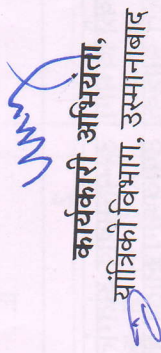 कार्यकारी अभियंता,
यांत्रिकी विभाग, उस्मानाबाद